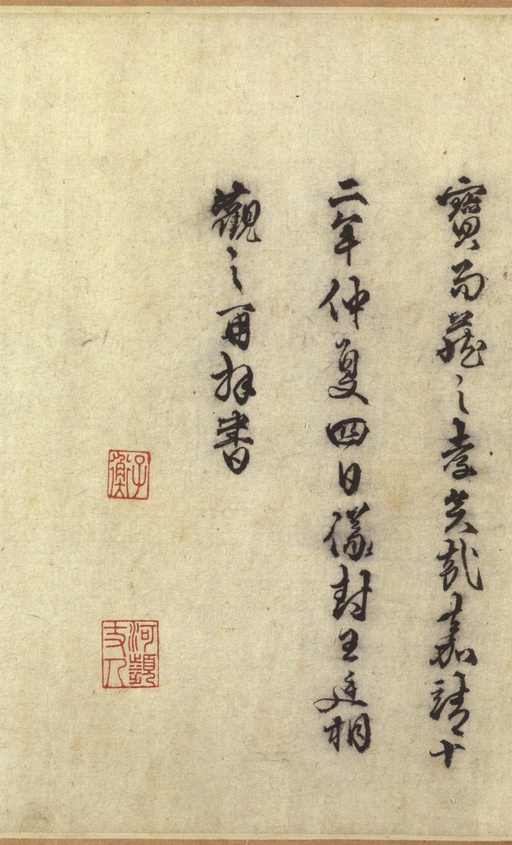 寶而藏之孝矣哉嘉靖十
二年仲夏四日儀封王廷相
觀之再拜書
子衡